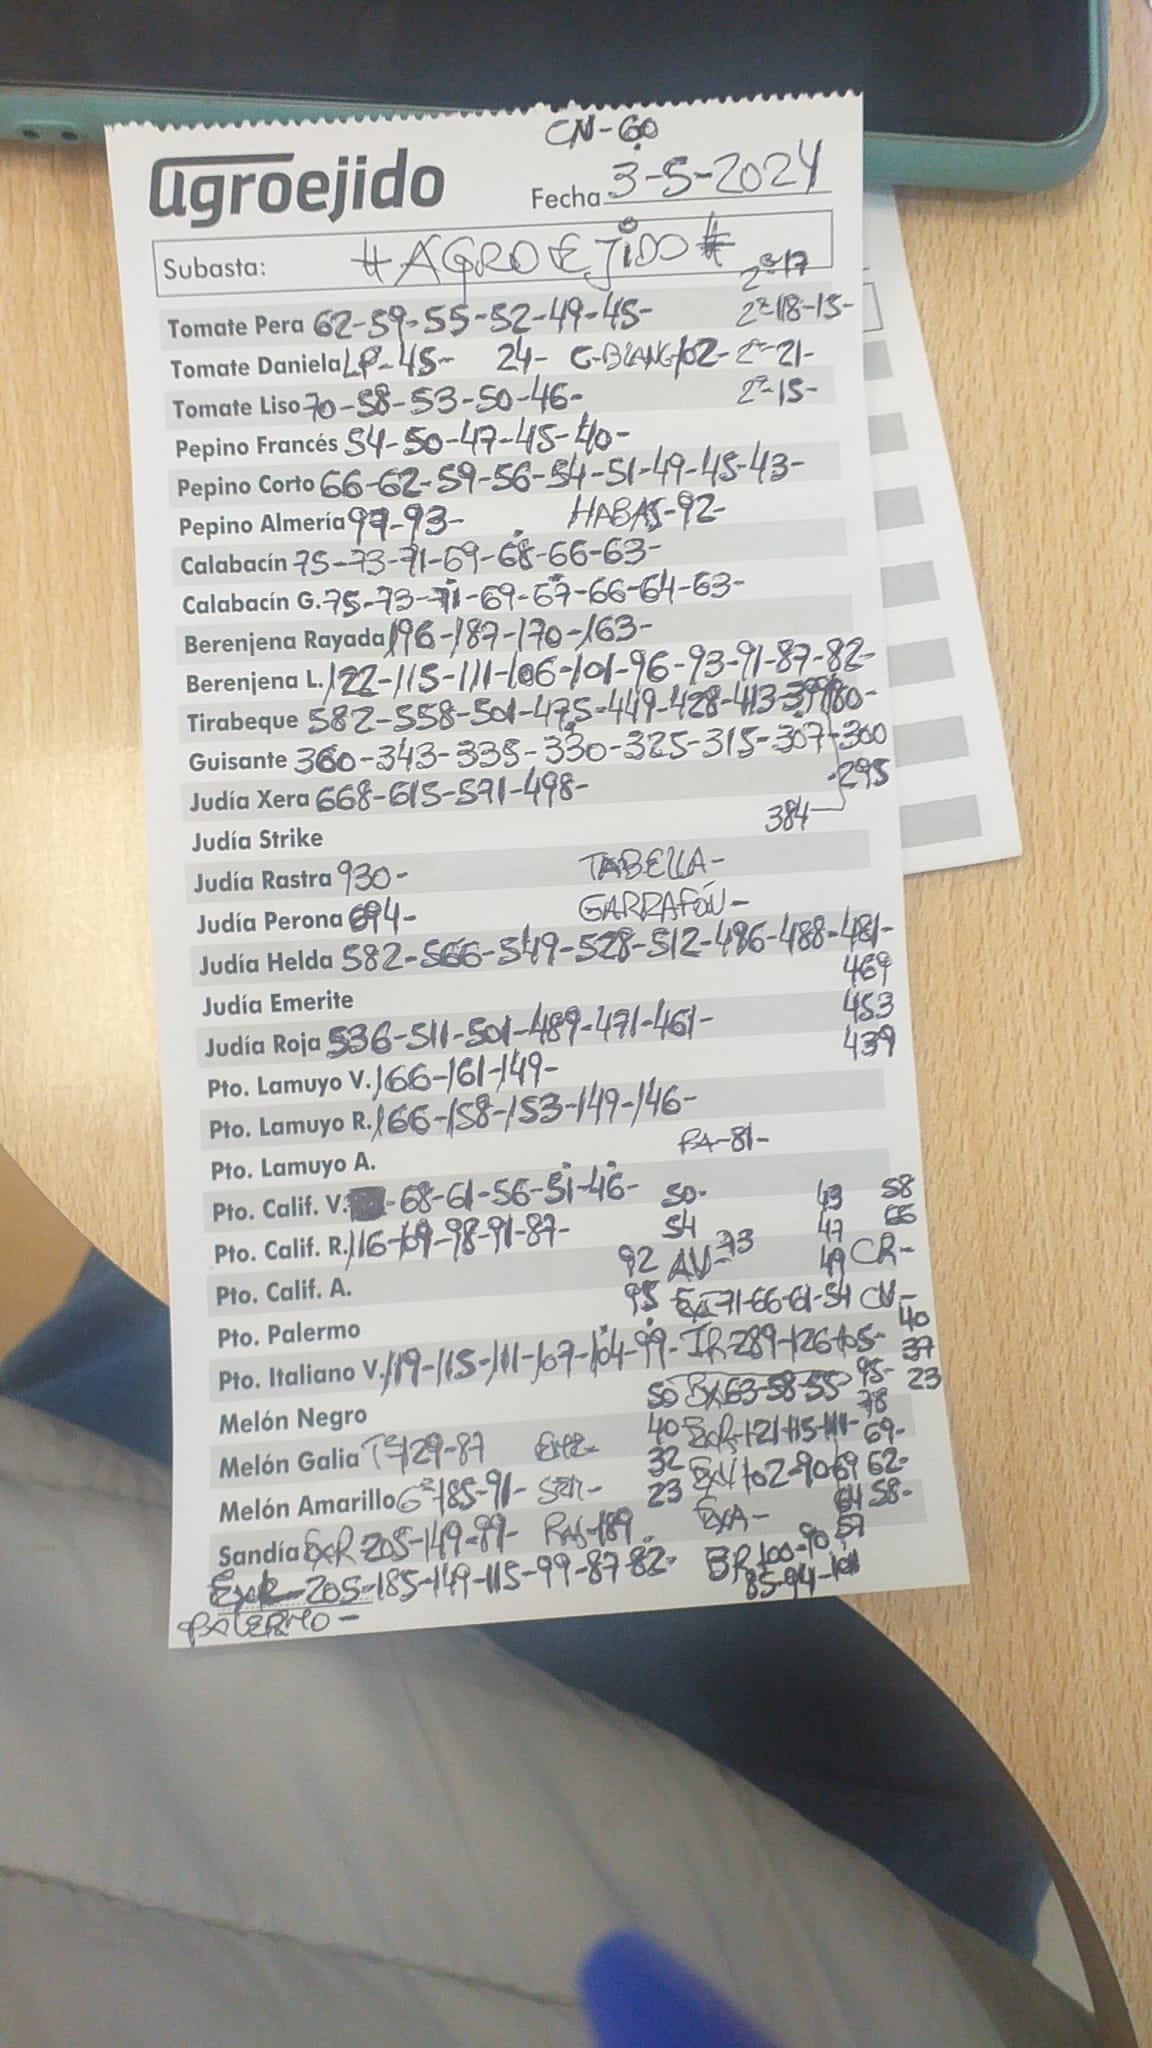 CN-60
agroejido
Fecha 3-5-2024
Subasta: #AGROEJIDO# 2ª-17
Tomate Pera 62-59-55-52-49-45- 2ª-18-15-
Tomate Daniela LP-45- 24- C-BLANC-102- 2ª-21-
Tomate Liso 70-58-53-50-46- 2ª-15-
Pepino Francés 54-50-47-45-40-
Pepino Corto 66-62-59-56-54-51-49-45-43-
Pepino Almería 97-93- HABAS-92-
Calabacín 75-73-71-69-68-66-63-
Calabacín G. 75-73-71-69-67-66-64-63-
Berenjena Rayada 196-187-170-163-
Berenjena L. 122-115-111-106-101-96-93-91-87-82-
Tirabeque 582-558-501-475-449-428-413-399 80-
Guisante 360-343-335-330-325-315-307-300
295
Judía Xera 668-615-571-498-
384
Judía Strike
Judía Rastra 930- TABELLA-
Judía Perona 694- GARRAFÓN-
Judía Helda 582-566-549-528-512-496-488-481-
469
Judía Emerite 453
Judía Roja 536-511-501-489-471-461- 439
Pto. Lamuyo V. 166-161-149-
Pto. Lamuyo R. 166-158-153-149-146-
Pto. Lamuyo A. PA-81-
Pto. Calif. V. -68-61-56-51-46- 50- 43 58
Pto. Calif. R. 116-109-98-91-87- 54 47
Pto. Calif. A. 92 AV-73 49 CR-
Pto. Palermo 95 71-66-61-54 CN-
40
Pto. Italiano V. 119-115-111-107-104-99- 289-126-105- 37
50 63-58-55 95- 23
78
Melón Negro
40 ExR-121-115-111- 69-
Melón Galia 129-87 32 102-90 69 62-
Melón Amarillo 185-91- 23 64 58-
Sandía ExR 205-149-99- RAJ-189. ExA- 57
ExR-205-185-149-115-99-87-82- BR 100-90
85-94-101
PALERMO-